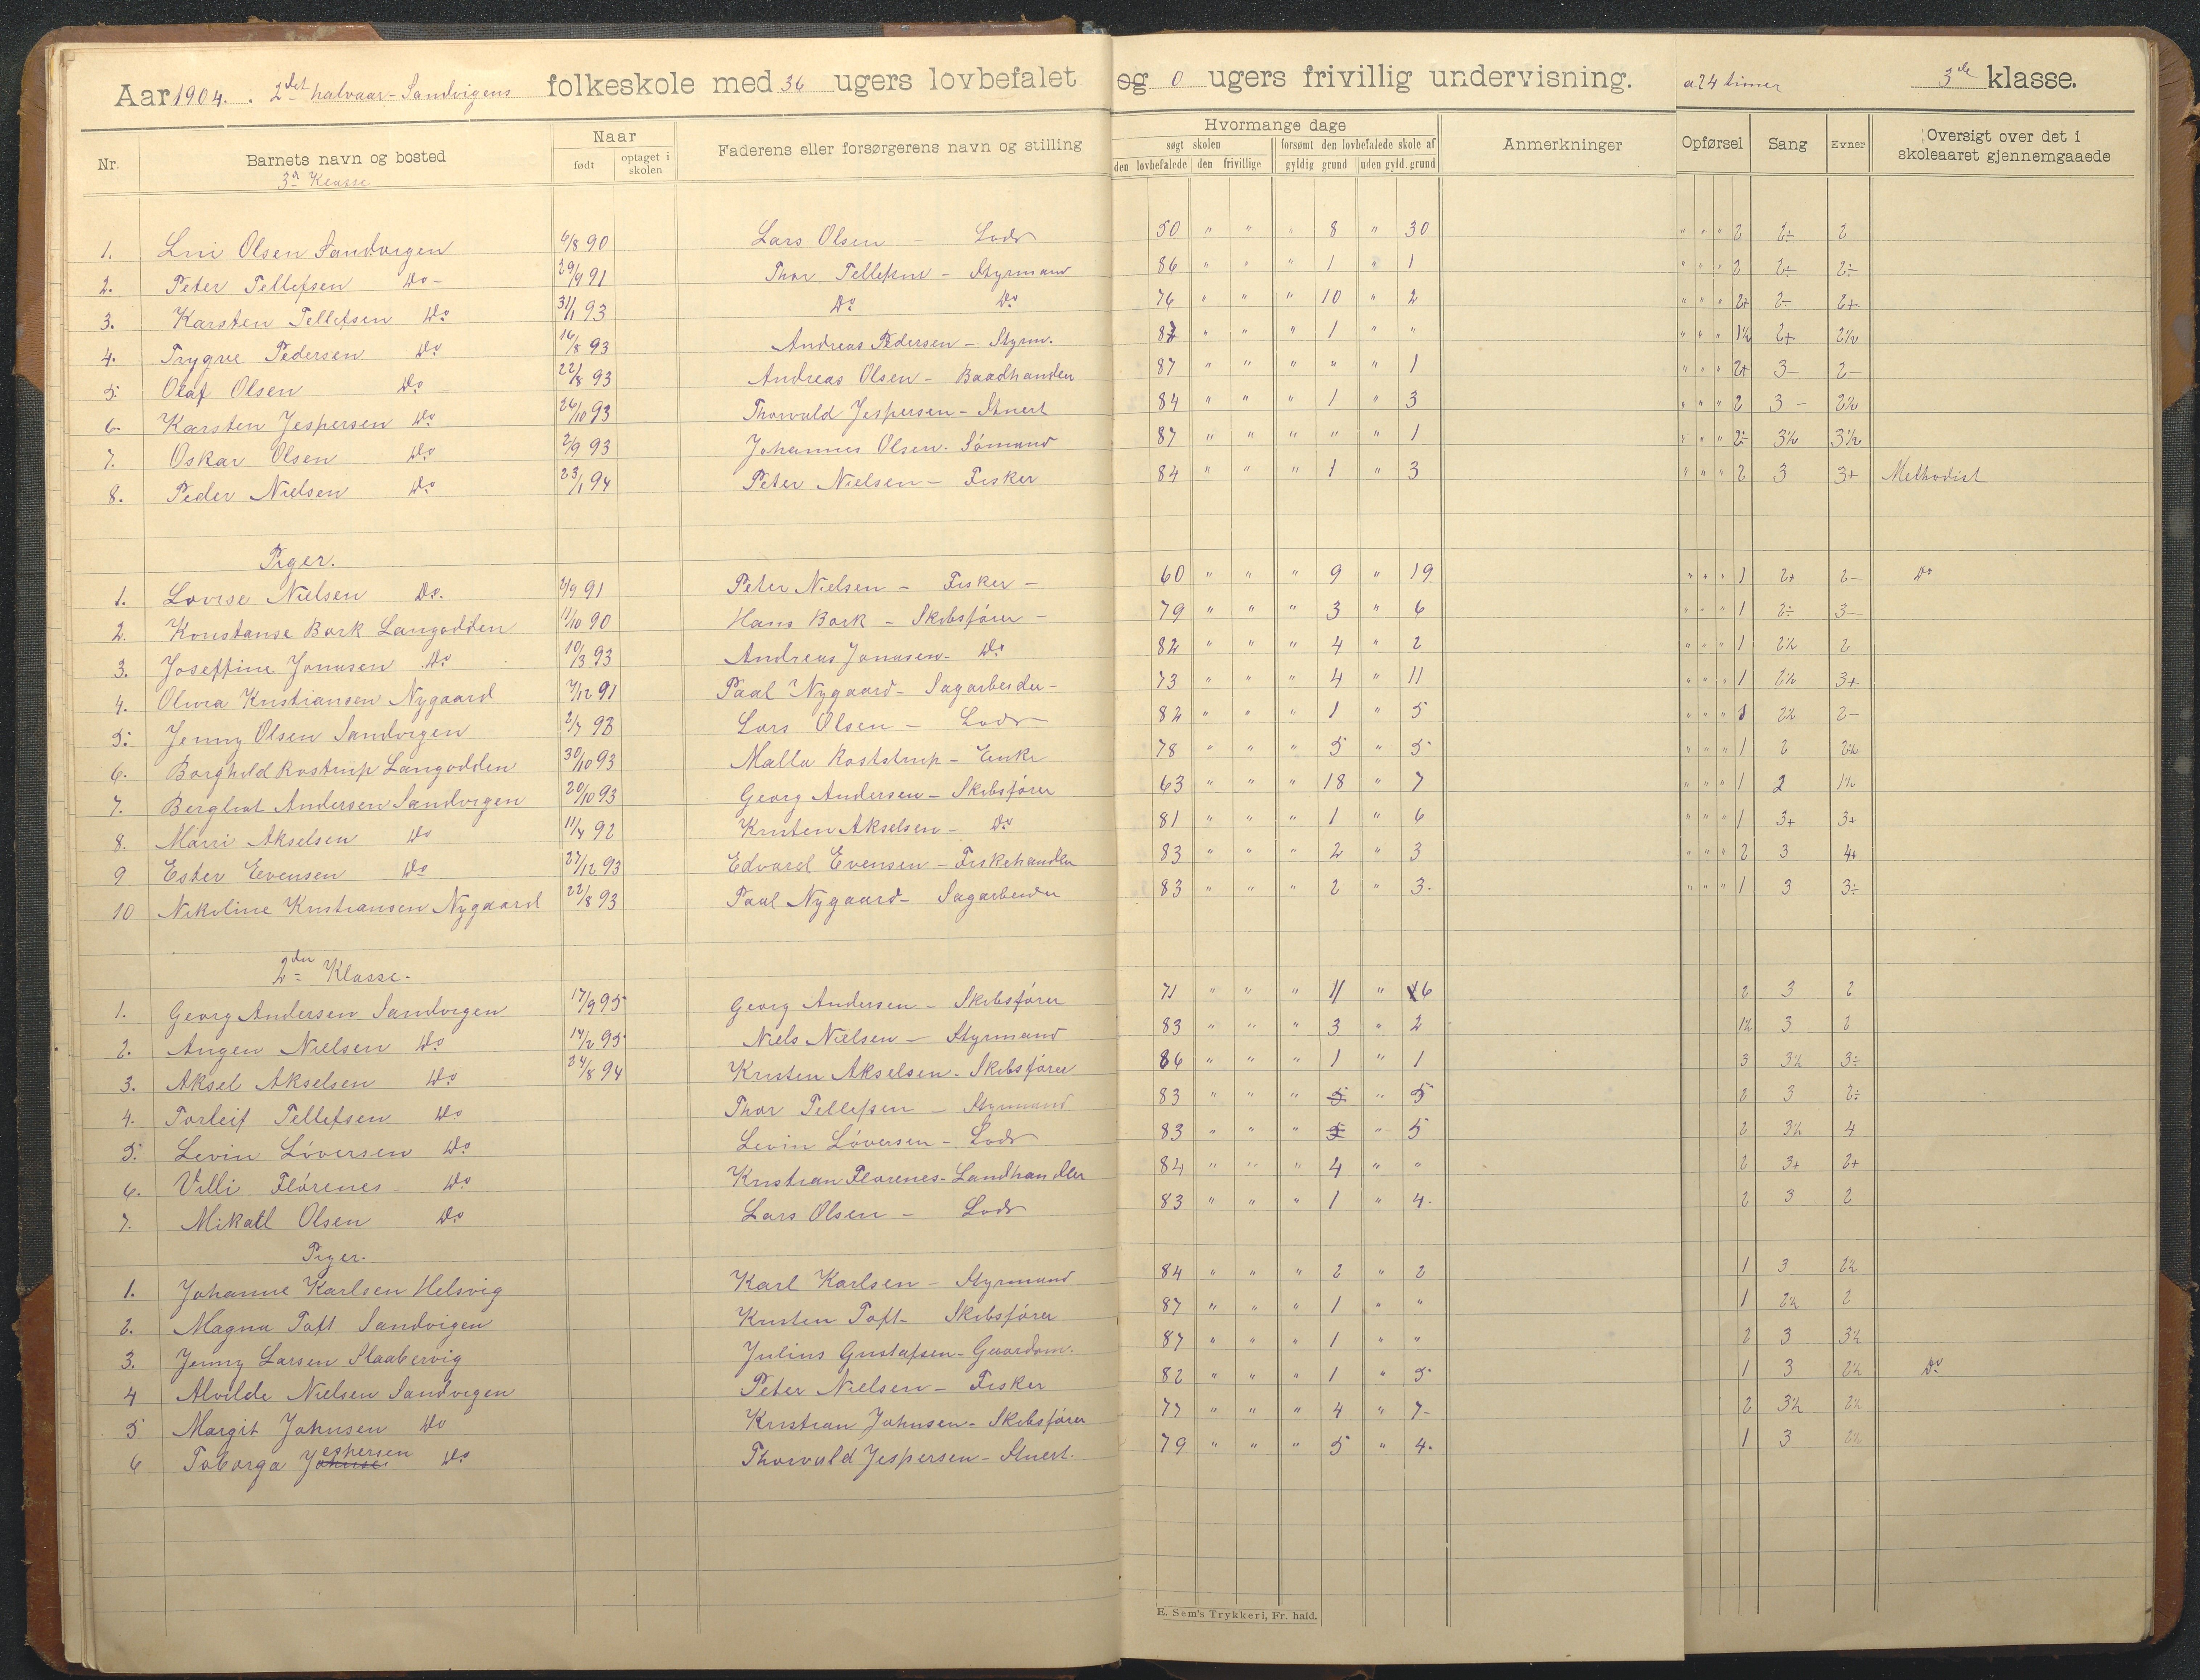 Aar 1904. 2det halvaar - Sandvigens folkeskole med 36 ugers lovbefalet og 0 ugers frivillig undervisning. a 24 timer 3die klasse.
Nr. Barnets navn og bosted Naar født optaget i skolen Faderens eller forsørgerens navn og stilling Hvormange dage søgt skolen den lovbefalede den frivillige forsømt den lovbefalede skole af gyldig grund uden gyld. grund Anmerkninger Opførsel Sang Evner Oversigt over det i skoleaaret gjennemgaaede
3die Klasse
1. Olsen Sandvigen 6/8 90 Lars Olsen - Lods 50 " " " 8 " 30 " " " 2 2÷ 2
2. Peter Tellefsen Do - 29/9 91 Thor Tellefsen - Styrmand 86 " " " 1 " 1 " " " 2 2+ 2÷
3. Karsten Tellefsen Do 31/1 93 Do Do 76 " " " 10 " 2 " " " 2+ 2- 2+
4. Trygve Pedersen Do 16/8 93 Andreas Pedersen - Styrm. 87 " " " 1 " " " " " 1½ 2+ 2½
5. Olaf Olsen Do 22/8 93 Andreas Olsen - Baadhandler 87 " " " " " 1 " " " 2+ 3- 2-
6. Karsten Jespersen Do 26/10 93 Thorvald Jespersen - Stuert 84 " " " 1 " 3 " " " 2 3- 2½
7. Oskar Olsen Do 2/9 93 Johannes Olsen. Sømand 87 " " " " " 1 " " " 2÷ 3½ 3½
8. Peder Nielsen Do 23/1 94 Peter Nielsen - Fisker 84 " " " 1 " 3 " " " 2 3 3+ Methodist
Piger.
1. Lovise Nielsen Do. 2/9 91 Peter Nielsen - Fisker - 60 " " " 9 " 19 " " " 1 2+ 2- Do
2. Konstanse Bork Langodden 11/10 90 Hans Bork - Skibsfører - 79 " " " 3 " 6 " " " 1 2÷ 3-
3. Joseffine Jonasen Do 10/3 93 Andreas Jonasen - Do 82 " " " 4 " 2 " " " 1 2½ 2
4. Olivia Kristiansen Nygaard 7/12 91 Paal Nygaard - Sagarbeider - 73 " " " 4 " 11 " " " 1 2½ 3+
5. Jenny Olsen Sandvigen 2/7 93 Lars Olsen - Lods 82 " " " 1 " 5 " " " 1 2½ 2-
6. Borghild Rostrup Langodden 30/10 93 Malla Roststrup - Enke 78 " " " 5 " 5 " " " 1 2 2½
7. Bergliot Andersen Sandvigen 20/10 93 Georg Andersen - Skibsfører 63 " " " 18 " 7 " " " 1 2 1½
8. Marri Akselsen Do 11/4 92 Kristen Akselsen - Do 81 " " " 1 " 6 " " " 1 3+ 3+
9 Ester Evensen Do 27/12 93 Edvard Evensen - Fiskehandler 83 " " " 2 " 3 " " " 2 3 4+
10 Nikoline Kristiansen Nygaard 22/8 93 Paal Nygaard - Sagarbeider 83 " " " 2 " 3. " " " 1 3 3÷
2den Klasse.
1. Georg Andersen Sandvigen 17/9 95 Georg Andersen - Skibsfører 71 " " " 11 " 6 2 3 2
2. Angen Nielsen Do 14/2 95 Niels Nielsen - Styrmand 83 " " " 3 " 2 1½ 3 2
3. Aksel Akselsen Do 24/8 94 Kristen Akselsen - Skibsfører 86 " " " 1 " 1 3 3½ 3÷
4. Torleif Tellefsen Do Thor Tellefsen - Styrmand 83 " " " 5 " 5 2 3 2÷
5. Levin Løversen Do Levin Løversen - Lods 83 " " " 5 " 5 2 3½ 4
6. Villi Flørenes - Do Kristian Flørenes - Landhandler 84 " " " 4 " " 2 3+ 2+
7. Mikall Olsen Do Lars Olsen - Lods 83 " " " 1 " 4. 2 3 2
Piger.
1. Johanne Karlsen Helsvig Karl Karlsen - Styrmand 84 " " " 2 " 2 1 3 2½
2. Magna Toft Sandvigen Kristen Toft - Skibsfører 87 " " " 1 " " 1 2½ 2
3. Jenny Larsen Slaabervig Julius Gustafsen - Gaardsm. 87 " " " 1 " " 2 3 3½
4 Alvilde Nielsen Sandvigen Peter Nielsen - Fisker 82 " " " 1 " 5 1 3 2½ Do
5 Margit Johnsen Do Kristian Johnsen - Skibsfører 77 " " " 4 " 7- 2 3½ 2½
6 Toborga Jespersen Do Thorvald Jespersen - Stuert. 79 " " " 5 " 4. 1 3 2½
E. Sem's Trykkeri, Fr. hald.